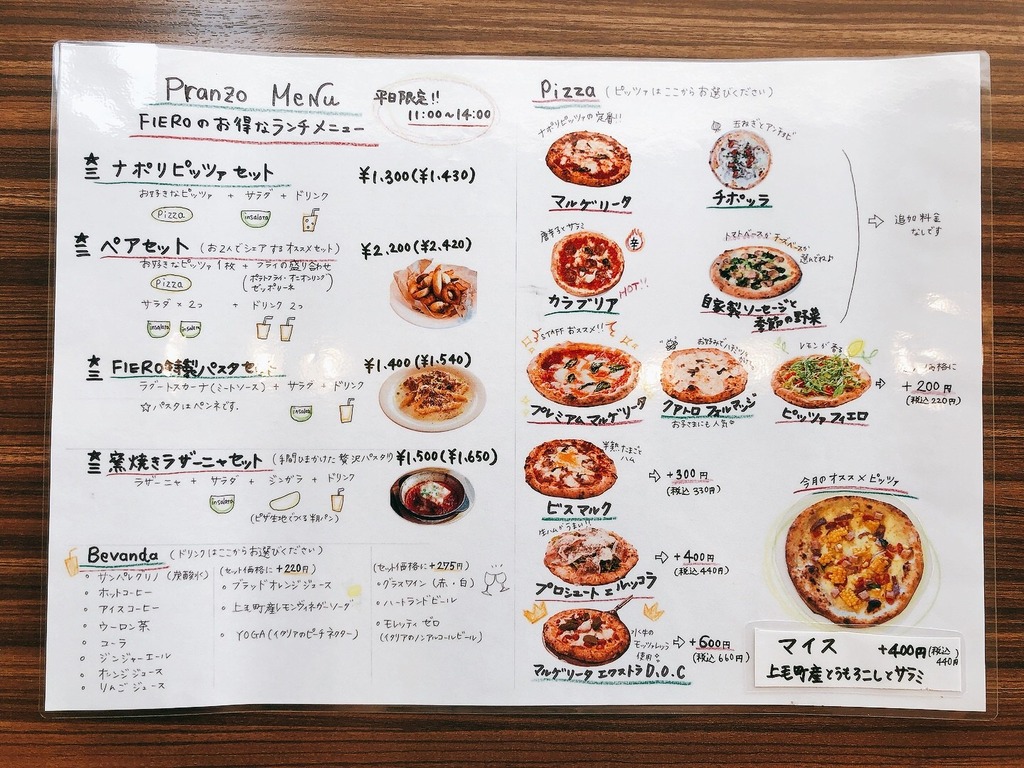 Pranzo Menu
FIEROのお得なランチメニュー
平日限定!!
11:00~14:00
ナポリピッツァセット ¥1.300(¥1.430)
お好きなピッツァ + サラダ + ドリンク
Pizza insalata
ペアセット (お2人でシェアするオススメセット) ¥2.200(¥2.420)
お好きなピッツァ1枚 + フライの盛り合わせ
Pizza
(ポテトフライ・オニオンリング
ゼッポリーネ)
サラダ×2つ + ドリンク2つ
insalata insalata
FIERO特製パスタセット ¥1.400(¥1.540)
ラグートスカーナ(ミートソース) + サラダ + ドリンク
☆パスタはペンネです。
insalata
窯焼きラザーニャセット (手間ひまかけた贅沢パスタ!!) ¥1.500(¥1.650)
ラザーニャ + サラダ + ジンガラ + ドリンク
insalata
(ピザ生地でつくる丸パン)
Bevanda (ドリンクはここからお選びください)
・サンペレグリノ(炭酸水)
・ホットコーヒー
・アイスコーヒー
・ウーロン茶
・コーラ
・ジンジャーエール
・オレンジジュース
・りんごジュース
(セット価格に+220円)
・ブラッドオレンジジュース
・上毛町産レモンヴィネガーソーダ
・YOGA(イタリアのピーチネクター)
(セット価格に+275円)
・グラスワイン(赤・白)
・ハートランドビール
・モレッティ ゼロ
(イタリアのノンアルコールビール)
Pizza (ピッツァはここからお選びください)
ナポリピッツァの定番!!
マルゲリータ
玉ねぎとアンチョビ
チポッラ
唐辛子とサラミ
辛
HOT!!
カラブリア
トマトベースかチーズベースか
選んでね♪
自家製ソーセージと
季節の野菜
追加料金
なしです
STAFFおススメ!!
プレミアムマルゲリータ
クアトロフォルマッジ
お子さまにも人気
レモンが香る
ピッツァフィエロ
+200円
(税込220円)
半熟たまごと
ハム
ビスマルク
+300円
(税込330円)
生ハムがうまい!!
プロシュート エ ルッコラ
+400円
(税込440円)
水牛の
モッツァレッラ
使用
マルゲリータ エクストラ D.O.C
+600円
(税込660円)
今月のオススメピッツァ
マイス +400円(税込440円)
上毛町産とうもろこしとサラミ